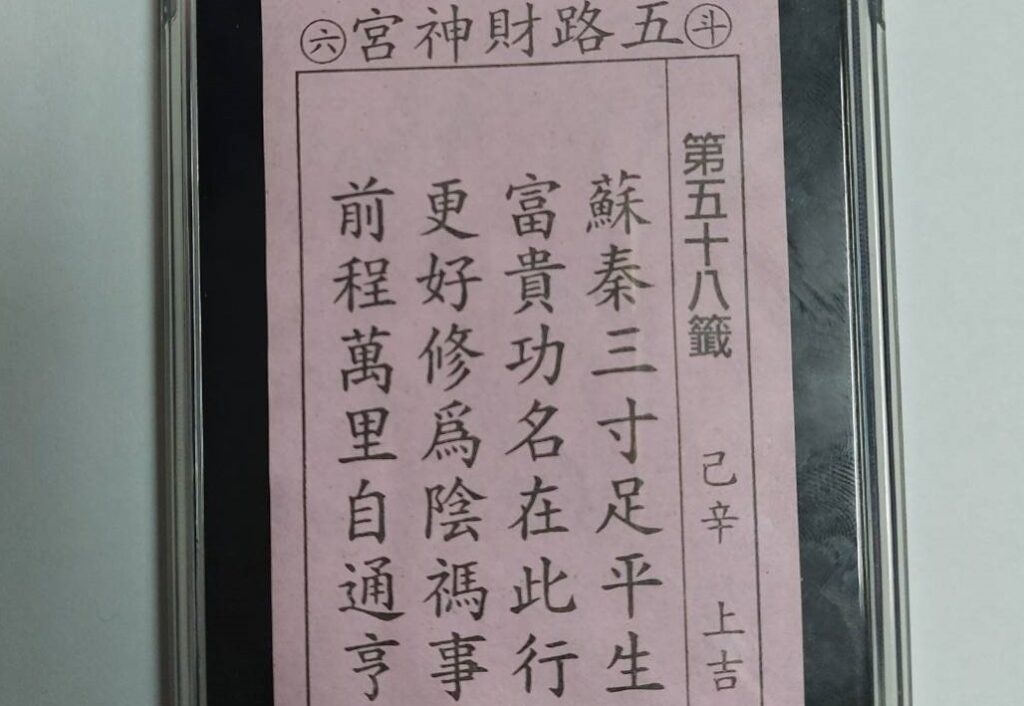 斗五路財神宮六
第五十八籤 己辛 上吉
蘇秦三寸足平生
富貴功名在此行
更好修爲陰禡事
前程萬里自通亨